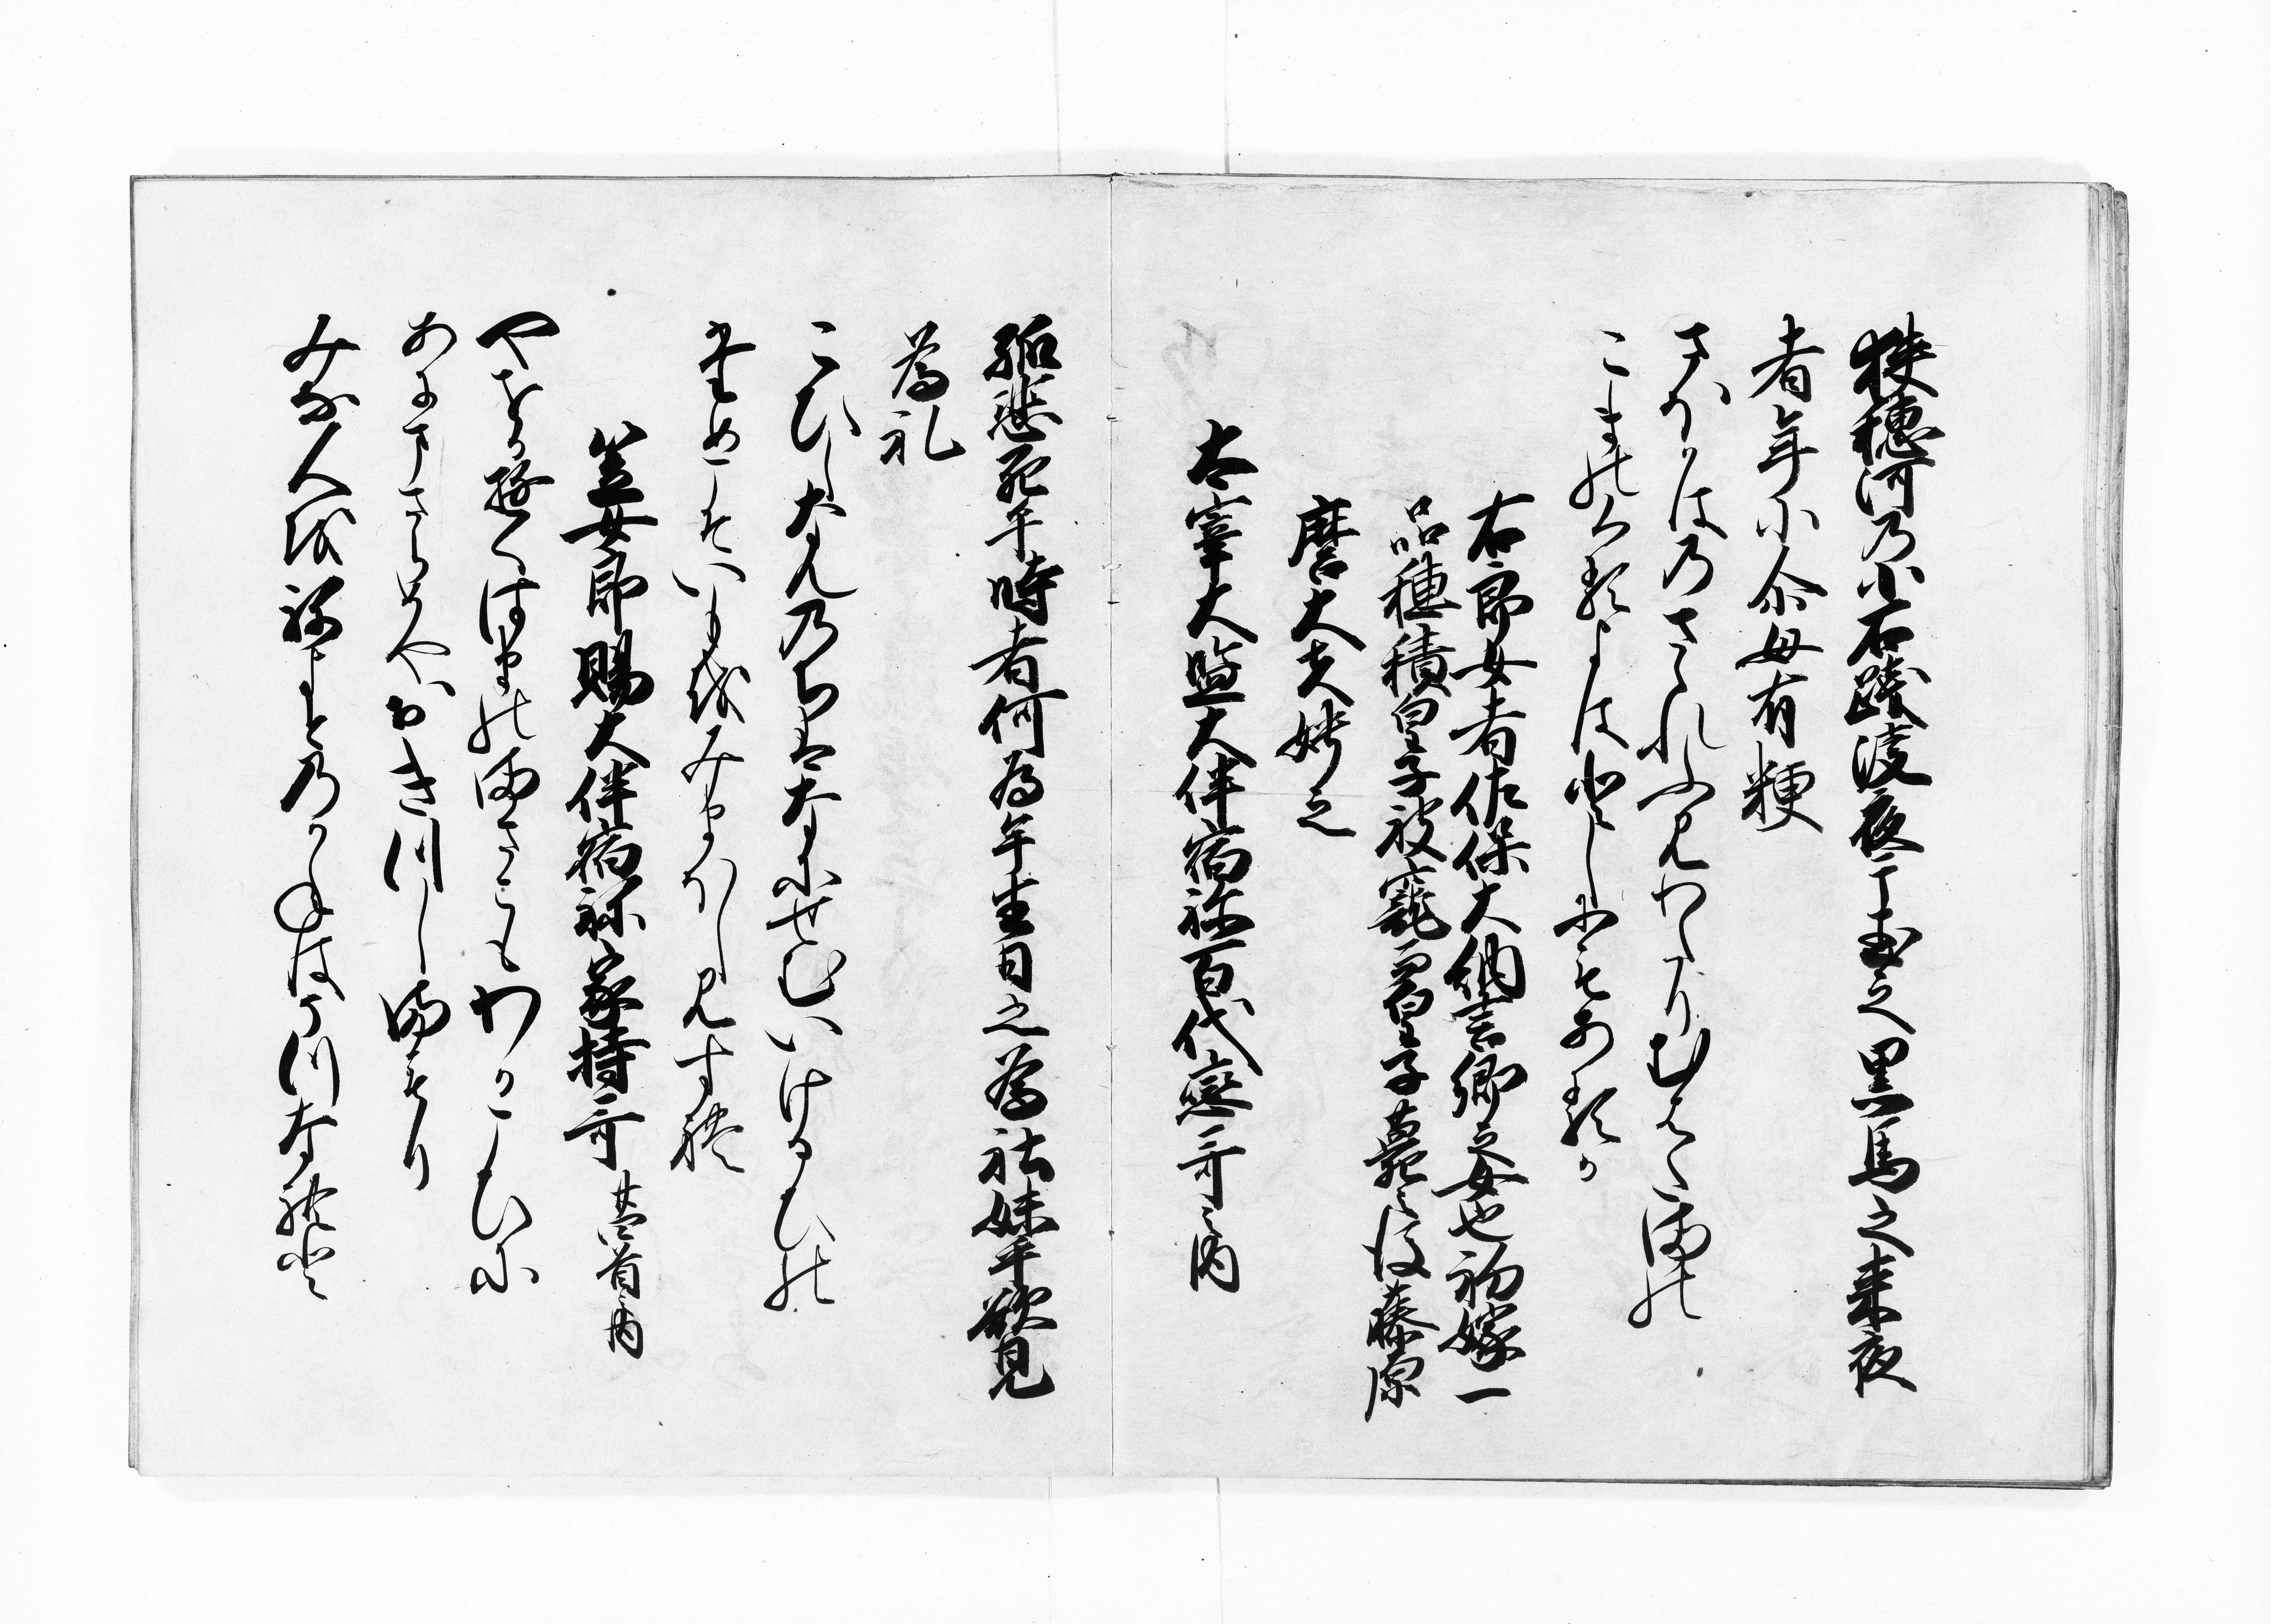 狭穂河乃小石践渡夜干玉之黒馬之来夜
者年小尒母有粳
さほかは乃さゝれふみわたりむはたまの
こまのくるよはとしにもあるか
右郎女者佐保大納言卿之女也初嫁一
品穂積皇子被寵而皇子薨之後藤原
麿大夫娉之
太宰大監大伴宿祢百代戀哥之内
孤悲死牟時者何為牟生日之為社妹乎欲見
為礼
こひしなん乃ちはなにせむいけるひの
ためこそいもをみまほし見すれ
笠女郎賜大伴宿祢家持哥 廿四首内
やをかゆくはまのまさこもわかこひに
あにまさらめやおきつしまもり
みな人をねよと乃かねはうつなれと